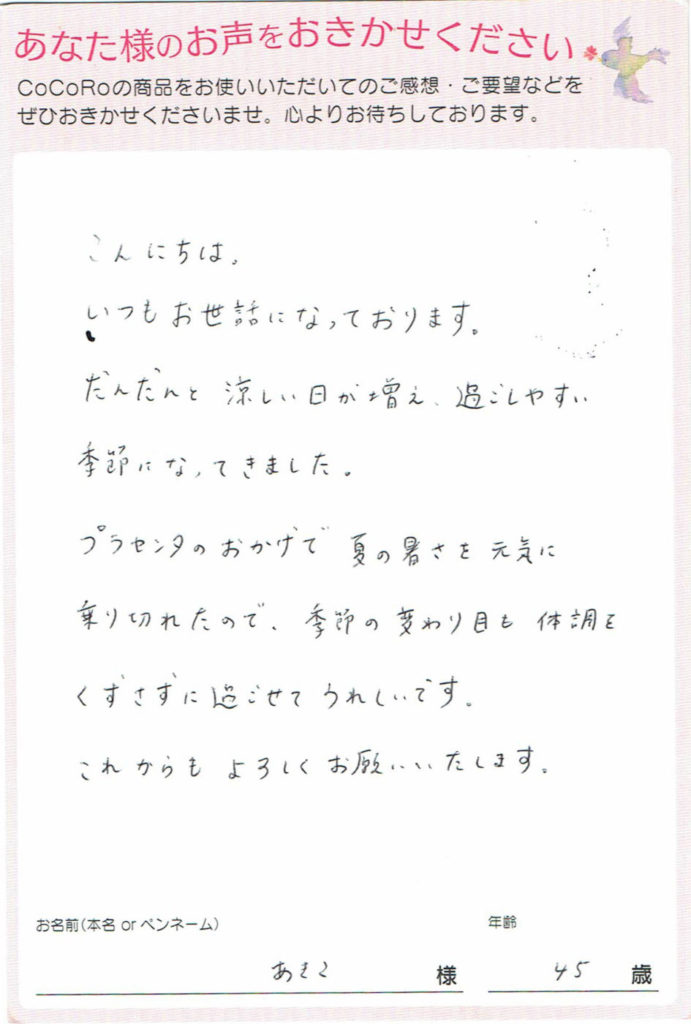 あなた様のお声をおきかせください
CoCoRoの商品をお使いいただいてのご感想・ご要望などを
ぜひおきかせくださいませ。心よりお待ちしております。
こんにちは。
いつもお世話になっております。
だんだんと 涼しい日が増え、過ごしやすい
季節になってきました。
プラセンタのおかげで 夏の暑さを 元気に
乗り切れたので、季節の変わり目も 体調を
くずさずに過ごせて うれしいです。
これからも よろしく お願いいたします。
お名前(本名 or ペンネーム) 年齢
あきこ 様 45 歳